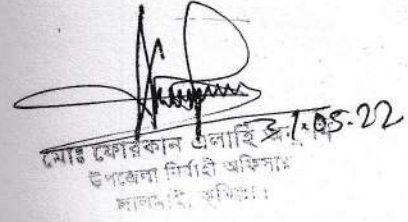 31.05.22
মোঃ ফোরকান এলাহি
উপজেলা নির্বাহী অফিসার
লালমাই, কুমিল্লা।